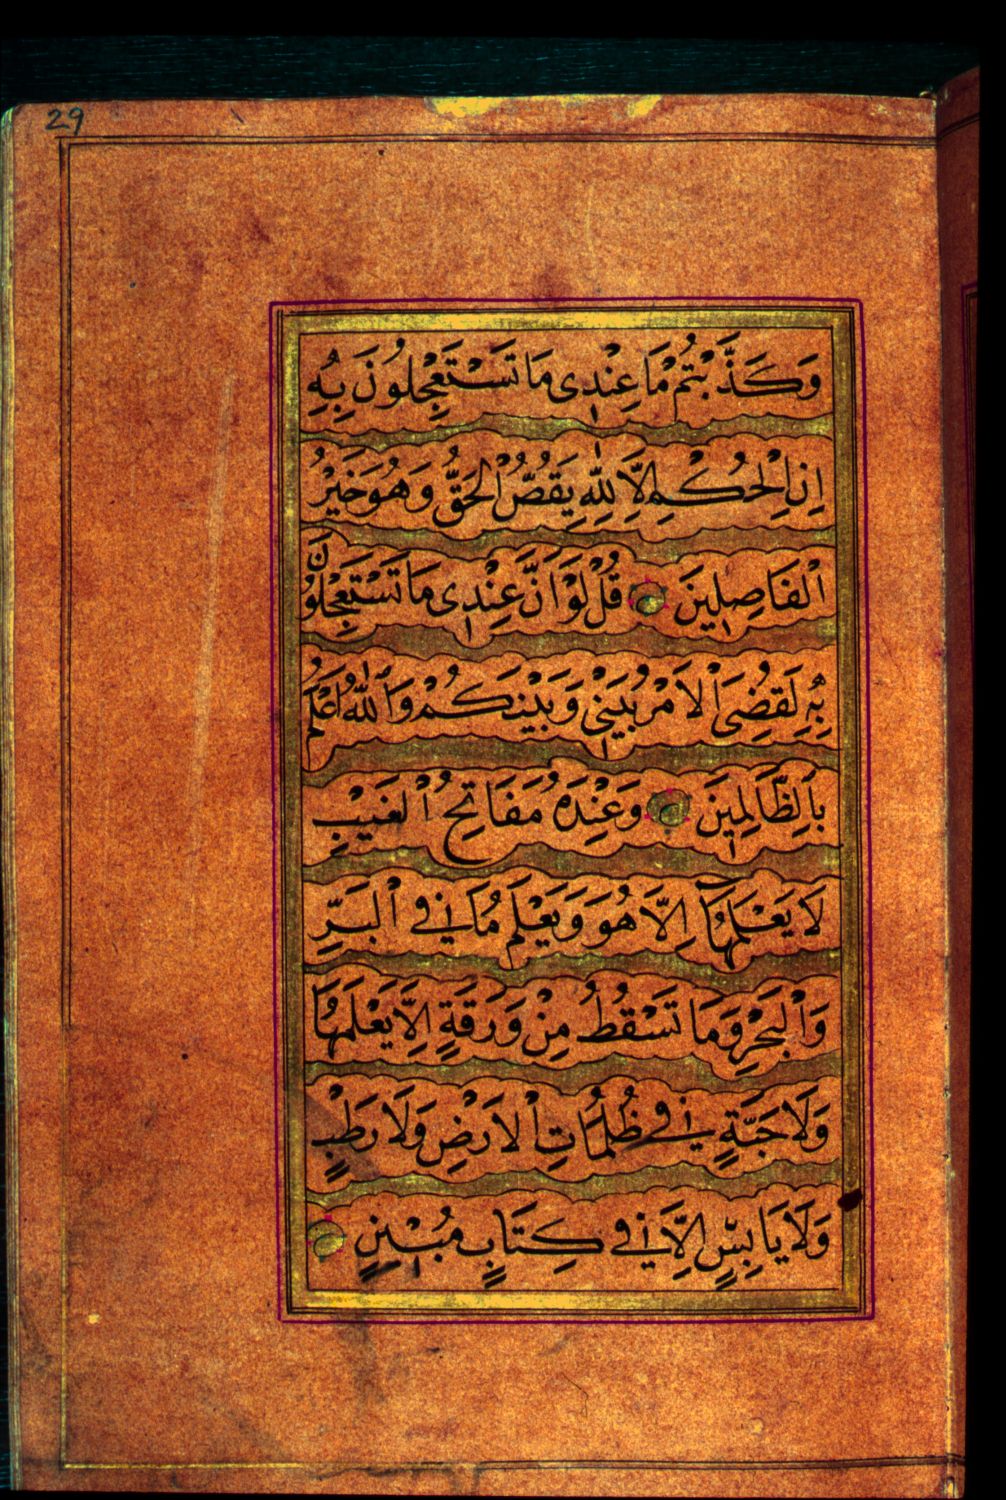 29
وَكَذَّبْتُمْ مَا عِنْدِى مَا تَسْتَعْجِلُونَ بِهِ
اِنِ الْحُكْمِ اِلَّا لِلّٰهِ يَقُصُّ الْحَقُّ وَهُوَ خَيْرُ
الْفَاصِلِينَ قُلْ لَوْ اَنَّ عِنْدِى مَا تَسْتَعْجِلُونَ
بِهِ لَقُضِىَ الْاَمْرُ بَيْنِىْ وَبَيْنَكُمْ وَاللّٰهُ اَعْلَمُ
بِالظَّالِمِينَ وَعِنْدَهُ مَفَاتِحُ الْغَيْبِ
لَا يَعْلَمُهَآ اِلَّا هُوَ وَيَعْلَمُ مَا فِى الْبَرِّ
وَالْبَحْرِ وَمَا تَسْقُطُ مِنْ وَرَقَةٍ اِلَّا يَعْلَمُهَا
وَلَا حَبَّةٍ فِى ظُلُمَاتِ الْاَرْضِ وَلَا رَطْبٍ
وَلَا يَابِسٍ اِلَّا فِى كِتَابٍ مُبِينٍ